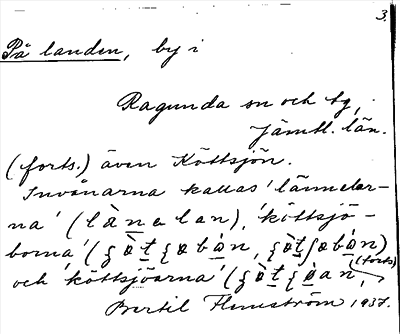 3.
På landen, by i
Ragunda sn och tg,
Jämtl. län.
(forts.) även Köttsjön.
Invånarna kallas 'lännelar-
na' (là̱nelan), 'köttsjö-
borna'
och 'köttsjöarna'
(forts)
Bertil Flemström 1937.